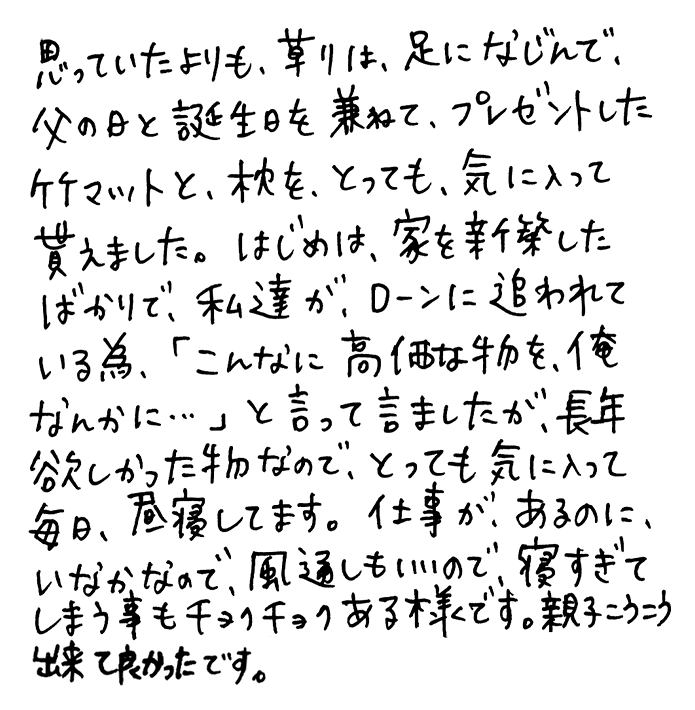 思っていたよりも、草りは、足になじんで、
父の日と誕生日を兼ねて、プレゼントした
竹マットと、枕を、とっても、気に入って
貰えました。はじめは、家を新築した
ばかりで、私達が、ローンに追われて
いる為、「こんなに高価な物を、俺
なんかに…」と言って言ましたが、長年
欲しかった物なので、とっても気に入って
毎日、昼寝してます。仕事が、あるのに、
いなかなので、風通しもいいので、寝すぎて
しまう事もチョクチョクある様くです。親子こうこう
出来て良かったです。